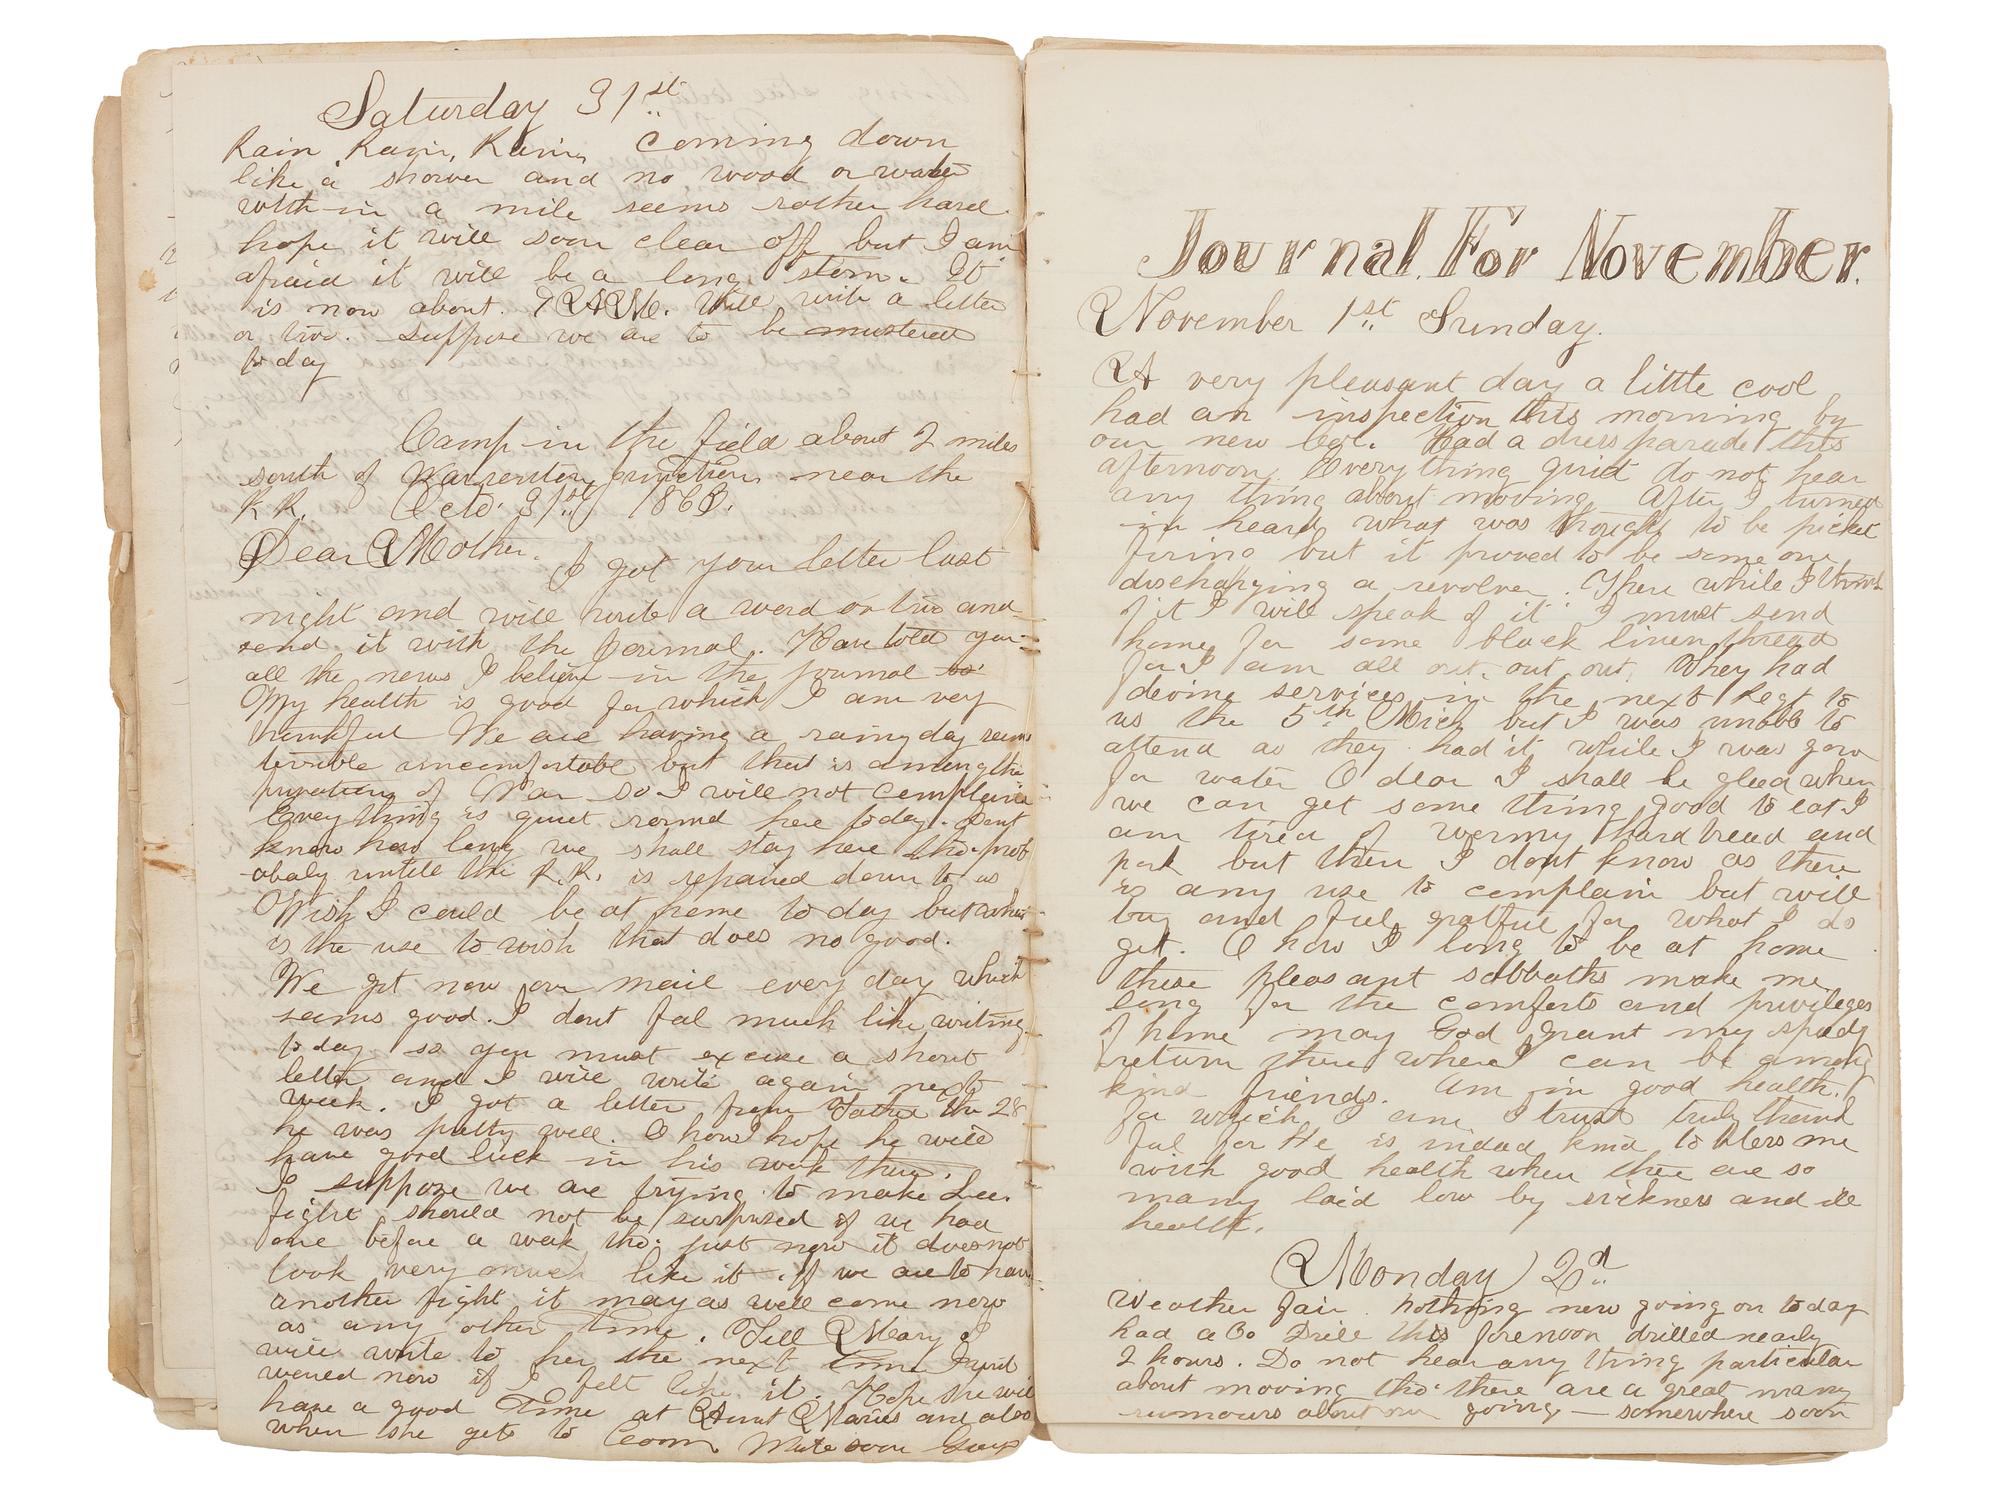 Saturday 31st
Rain Rain, Rain, coming down
like a shower and no wood or water
with-in a mile seems rather hard.
hope it will soon clear off but I am
afraid it will be a long storm. It
is now about. AM. Will write a letter
or two. suppose we are to be mustered
to day
Camp in the field about 2 miles
south of Warrenton junction near the
RR. Octo. 31st 1863.
Dear Mother. I got your letter last
night and will write a word or two and
send it with the journal. Have told you
all the news I believe in the journal
My health is good for which I am very
thankful We are having a rainy day seems
terrible uncomfortabe but that is among the
of War so I will not complain
Everything is quiet round here today. dont
know how long we shall stay here tho. prob
abaly untill the R.R. is repaired down to us
Wish I could be at home to day but what
is the use to wish that does no good.
We get now our mail every day which
seams good. I dont feel much like writing
to day so you must excuse a short
letter and I will write again next
week. I got a letter from Father the 28
he was pretty well. O how I hope he will
have good luck in his work there.
I suppose we are trying to make Lee.
fight should not be surprised if we had
one before a week tho. just now it does not
look very much like it. If we are to have
another fight it may as well come now
as any other time. Tell Mary I
will write to her the next time I
now if I felt like it. Hope she will
have a good Time at Aunt Maries and also
when she gets to Write soon
Journal For November.
November 1st Sunday.
A very pleasant day a little cool
had an inspection this morning by
our new Col. Had a dress parade this
afternoon. Everything quiet do not hear
any thing about moving. After I turned
in heard what was thought to be picket
firing but it proved to be some one
discharging a revolver. There while I think
of it I will speak of it I must send
home for some black linen thread
for I am all out, out, out. They had
devine services in the next Regt to
us the 5th Mich but I was unable to
attend as they had it while I was gone
for water O dear I shall be glad when
we can get some thing good to eat I
am tired of wormy hard bread and
pork but then I dont know as there
is any use to complain but will
try and feel gratful for what I do
get. O how I long to be at home
these pleasant sabbaths make me
long for the comforts and privileges
of home may God grant my speedy
return there where I can be among
kind friends. Am in good health.
for which I am I trust truly thank
ful for He is indeed kind to bless me
with good health when there are so
many laid low by sickness and ill
health.
Monday 2nd
Weather fair. Nothing new going on to day
had a Co Drill this forenoon drilled nearly
2 hours. Do not hear any thing particular
about moving tho. there are a great many
rumours about our going — somewhere soon